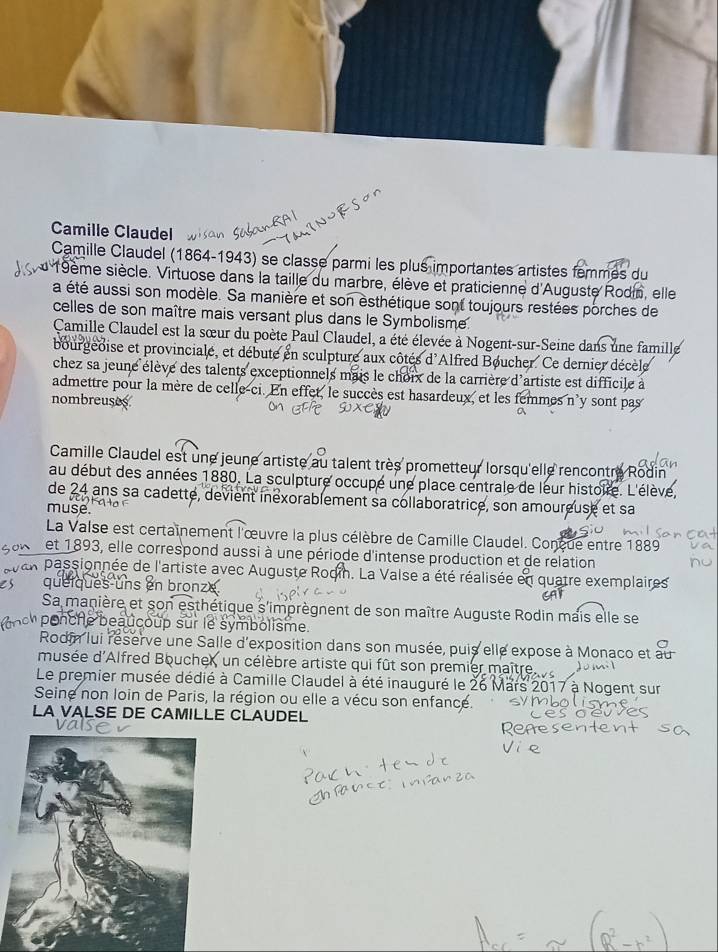 Camille Claudel wisan
Camille Claudel (1864-1943) se classe parmi les plus importantes artistes femmes du
19ème siècle. Virtuose dans la taille du marbre, élève et praticienne d'Auguste Rodin, elle
a été aussi son modèle. Sa manière et son esthétique sont toujours restées porches de
celles de son maître mais versant plus dans le Symbolisme.
Camille Claudel est la sœur du poète Paul Claudel, a été élevée à Nogent-sur-Seine dans une famille
bourgeoise et provinciale, et débute en sculpture aux côtés d'Alfred Boucher. Ce dernier décèle
chez sa jeune élève des talents exceptionnels mais le choix de la carrière d'artiste est difficile à
admettre pour la mère de celle-ci. En effet, le succès est hasardeux, et les femmes n'y sont pas
nombreuses.
Camille Claudel est une jeune artiste au talent très prometteur lorsqu'elle rencontre Rodin
au début des années 1880. La sculpture occupe une place centrale de leur histoire. L'élève,
de 24 ans sa cadette, devient inexorablement sa collaboratrice, son amoureuse et sa
muse.
La Valse est certainement l'œuvre la plus célèbre de Camille Claudel. Conçue entre 1889
son et 1893, elle correspond aussi à une période d'intense production et de relation
passionnée de l'artiste avec Auguste Rodin. La Valse a été réalisée en quatre exemplaires
es quelques-uns en bronze.
Sa manière et son esthétique s'imprègnent de son maître Auguste Rodin mais elle se
ponch penche beaucoup sur le symbolisme.
Rodin lui réserve une Salle d'exposition dans son musée, puis elle expose à Monaco et au
musée d'Alfred Boucher, un célèbre artiste qui fût son premier maître.
Le premier musée dédié à Camille Claudel à été inauguré le 26 Mars 2017 à Nogent sur
Seine non loin de Paris, la région ou elle a vécu son enfance.
symbolisme
LA VALSE DE CAMILLE CLAUDEL
ces oeuvres
valse
Repesentent sa
vie
Pach tende
enfance: infanza